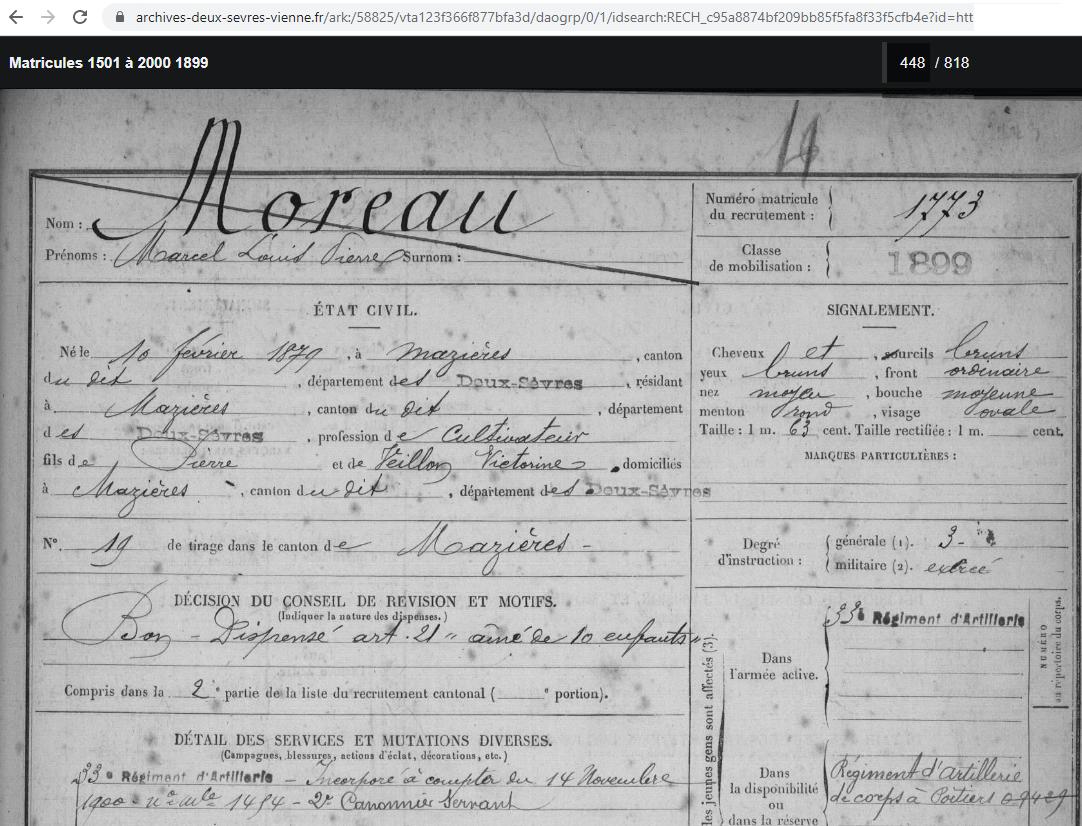 archives-deux-sevres-vienne.fr/ark:/58825/vta123f366f877bfa3d/daogrp/0/1/idsearch:RECH_c95a8874bf209bb85f5fa8f33f5cfb4e?id=htt
Matricules 1501 à 2000 1899
448 / 818
Nom : Moreau
Prénoms : Marcel Louis Pierre Surnom :
Numéro matricule du recrutement : 1773
Classe de mobilisation : 1899
ÉTAT CIVIL.
Né le 10 février 1879, à Mazières, canton
du dit, département des Deux-Sèvres, résidant
à Mazières, canton du dit, département
des Deux-Sèvres, profession de Cultivateur
fils de Pierre et de Veillon Victorine, domiciliés
à Mazières, canton du dit, département des Deux-Sèvres
N°. 19 de tirage dans le canton de Mazières -
SIGNALEMENT.
Cheveux et, sourcils bruns
yeux bruns, front ordinaire
nez moyen, bouche moyenne
menton rond, visage ovale
Taille : 1 m. 63 cent. Taille rectifiée : 1 m. cent.
MARQUES PARTICULIÈRES :
Degré d'instruction :
générale (1). 3
militaire (2). exercé
DÉCISION DU CONSEIL DE REVISION ET MOTIFS.
(Indiquer la nature des dispenses.)
Bon - Dispensé art. 21 " aîné de 10 enfants "
Compris dans la 2e partie de la liste du recrutement cantonal ( e portion).
DÉTAIL DES SERVICES ET MUTATIONS DIVERSES.
(Campagnes, blessures, actions d'éclat, décorations, etc.)
33e Régiment d'Artillerie - Incorporé à compter du 14 Novembre
1900 - no mle 1454 - 2e Canonnier Servant
les jeunes gens sont affectés (3).
Dans l'armée active.
33e Régiment d'Artillerie
NUMÉRO au répertoire du corps.
Dans la disponibilité ou dans la réserve
Régiment d'artillerie
de corps à Poitiers 09429